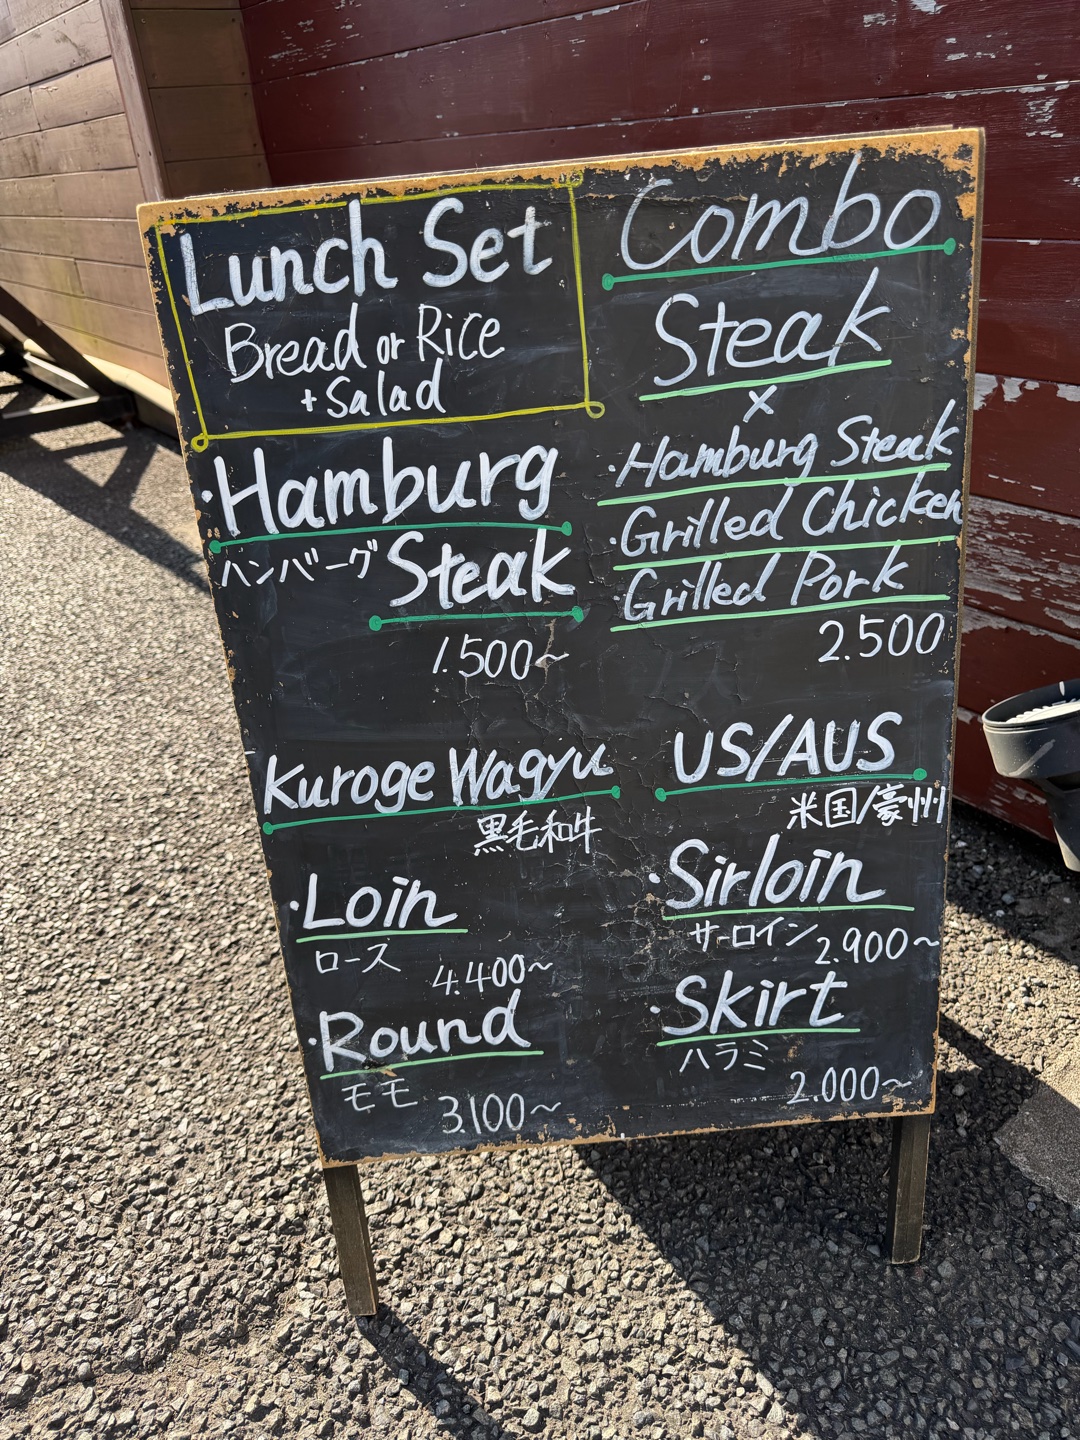 Lunch Set
Bread or Rice
+Salad
・Hamburg
ハンバーグ Steak
1.500~
Combo
Steak
×
・Hamburg Steak
・Grilled Chicken
・Grilled Pork
2.500
Kuroge Wagyu
黒毛和牛
・Loin
ロース 4.400~
・Round
モモ 3.100~
US/AUS
米国/豪州
・Sirloin
サーロイン 2.900~
・Skirt
ハラミ
2.000~